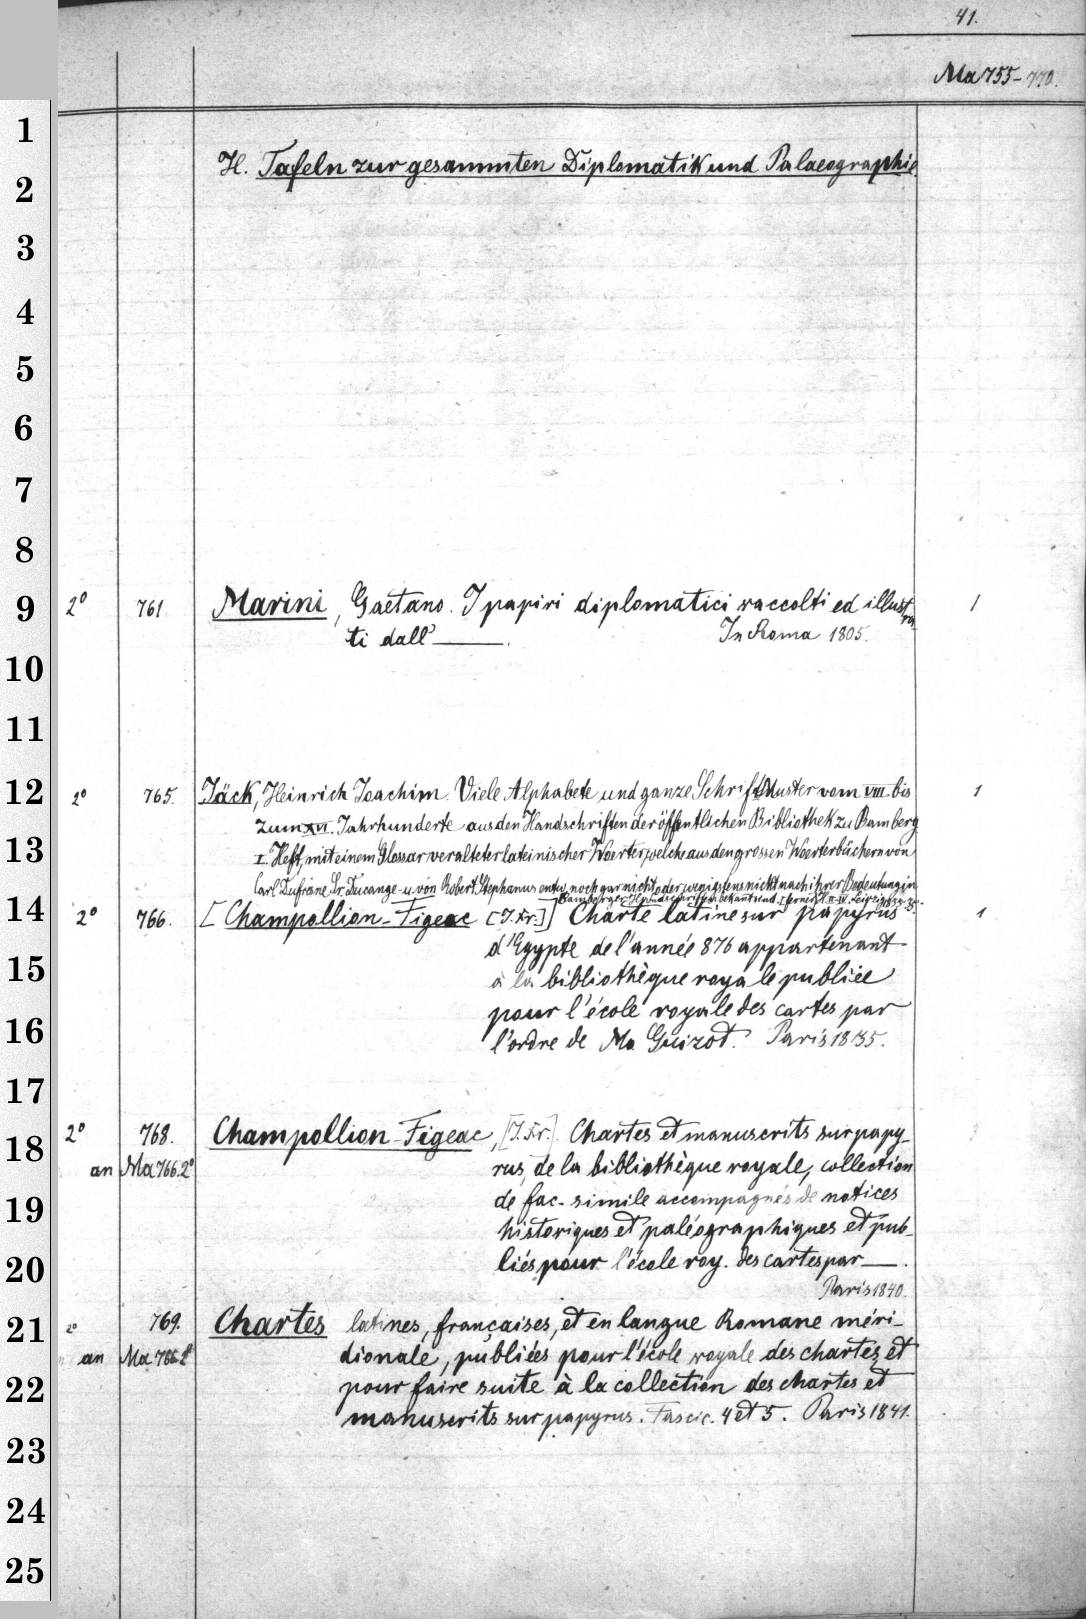 41.
Ma 755-770.
1
H. Tafeln zur gesammten Diplomatik und Palaeographie.
2
3
4
5
6
7
8
9 2° 761. Marini, Gaetano. I papiri diplomatici raccolti ed illustra- 1
ti dall' ——. In Roma 1805.
10
11
12 2° 765. Jäck, Heinrich Joachim. Viele Alphabete und ganze Schrift Muster vom VIII. bis 1
zum XVI. Jahrhunderte aus den Handschriften der öffentlichen Bibliothek zu Bamberg
13 I. Heft, mit einem Glossar veralteter lateinischer Woerter, welche aus den grossen Woerterbüchern von
Carl Dufresne Sr. Ducange u. von Robert Stephanus entw. noch gar nicht, oder wenigstens nicht nach ihrer Bedeutung in
Bamberger Handschriften bekannt sind.
14 2° 766. [Champollion-Figeac [J. Fr.]] Charte latine sur papyrus 1
d'Egypte de l'année 876 appartenant
15 à la bibliothèque royale publiée
pour l'école royale des cartes par
16 l'ordre de Ma Guizot. Paris 1835.
17
18 2° 768. Champollion-Figeac, [J. Fr.]. Chartes et manuscrits sur papy-
an Ma 766.2° rus, de la bibliothèque royale, collection
19 de fac-simile accompagnés de notices
historiques et paléographiques et pub-
20 liés pour l'école roy. des cartes par ——.
Paris 1840.
21 2° 769. Chartes latines, françaises, et en langue Romane méri-
an Ma 766.2° dionale, publiées pour l'école royale des chartes, et
22 pour faire suite à la collection des chartes et
manuscrits sur papyrus. Fascic. 4 et 5. Paris 1841.
23
24
25